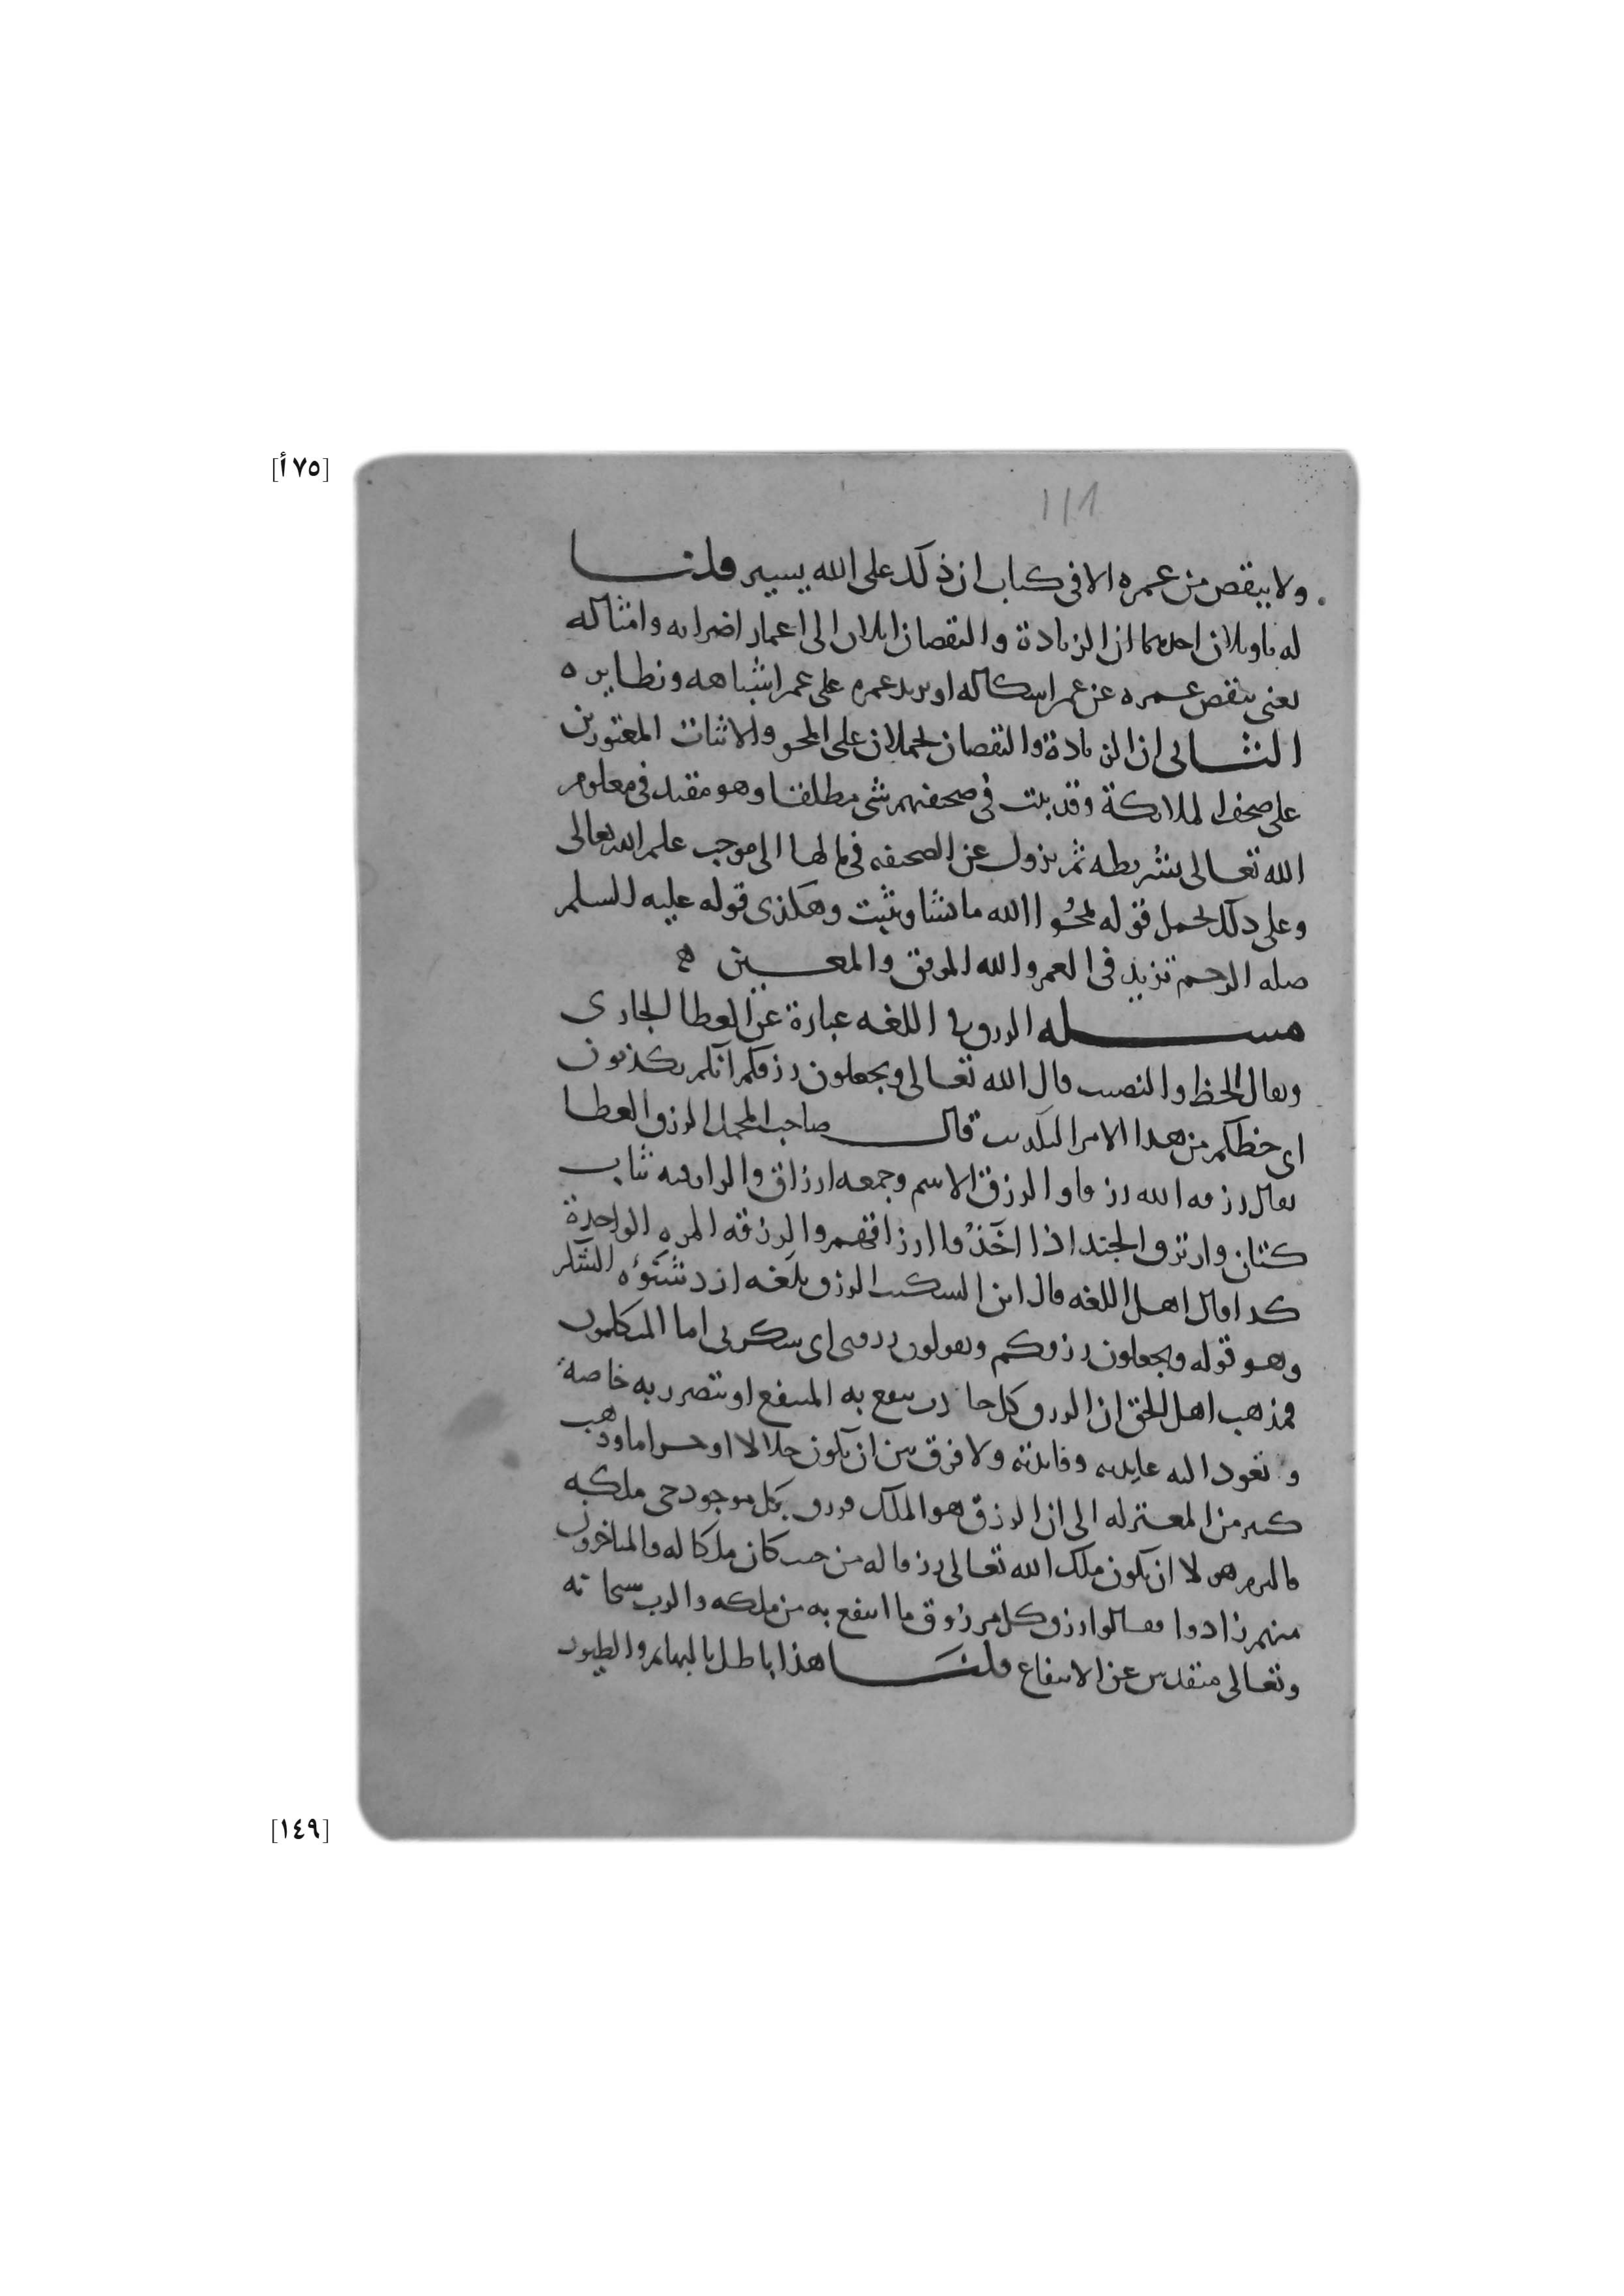 [٧٥أ]
١١١
ولا ينقص من عمره الا في كتاب ان ذلك على الله يسير قلنا
له تاويلان احدهما ان الزيادة والنقصان ايلان الى اعمار اضرابه وامثاله
يعني ينقص عمره عن عمر اشكاله او يزيد عمره على عمر اشباهه ونظايره
الثاني ان الزيادة والنقصان يحملان على المحو والاثبات المعتورين
على صحف الملايكة وقد يثبت في صحيفتهم شي مطلقا وهو مقيد في معلوم
الله تعالى بشريطه ثم يزول عن الصحيفه في مالها الى موجب علم الله تعالى
وعلى ذلك يحمل قوله يمحوا الله ما يشا ويثبت وهكذى قوله عليه السلم
صله الرحم تزيد في العمر والله الموفق والمعين
مسله الرزق في اللغه عبارة عن العطا الجاري
ويقال الحظ والنصيب قال الله تعالى وتجعلون رزقكم انكم تكذبون
اي حظكم من هذا الامر التكذيب قال صاحب المجمل الرزق العطا
يقال رزقه الله رزقا والرزق الاسم وجمعه ارزاق والرازقيه ثياب
كتان وارتزق الجند اذا اخذوا ارزاقهم والرزقه المره الواحدة
كذا قال اهل اللغه قال ابن السكيت الرزق بلغه ازد شنوه الشكر
وهو قوله وتجعلون رزقكم ويقولون رزقني اي شكرني اما المتكلمون
فمذهب اهل الحق ان الرزق كل حادث ينتفع به المنتفع او يتضرر به خاصة
وتعود اليه عايدته وفايدته ولا فرق بين ان يكون حلالا او حراما وذهب
كثير من المعتزله الى ان الرزق هو الملك ورزق كل موجود حي ملكه
فالزم هولا ان يكون ملك الله تعالى رزقا له من حيث كان ملكا له والمتاخرون
منهم زادوا فقالوا رزق كل مرزوق ما انتفع به من ملكه والرب سبحانه
وتعالى متقدس عن الانتفاع قلنا هذا باطل بالبهايم والطيور
[١٤٩]